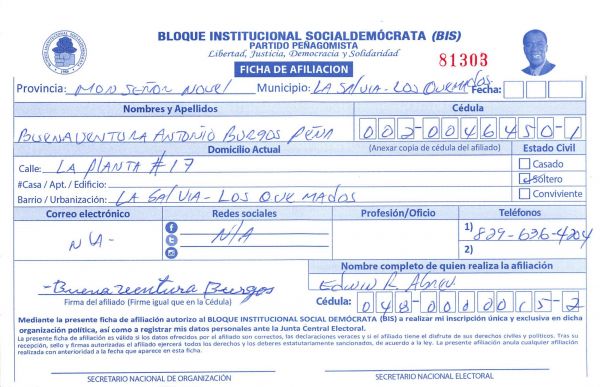 BLOQUE INSTITUCIONAL SOCIALDEMÓCRATA (BIS)
PARTIDO PEÑAGOMISTA
Libertad, Justicia, Democracia y Solidaridad
81303
FICHA DE AFILIACION
Provincia: MONSEÑOR NOUEL Municipio: LA SALVIA-LOS QUEMADOS. Fecha:
Nombres y Apellidos Cédula
BUENAVENTURA ANTONIO BURGOS PEÑA 002-0046450-1
Domicilio Actual (Anexar copia de cédula del afiliado) Estado Civil
Calle: LA PLANTA #17 Casado
#Casa / Apt. / Edificio: Soltero
Barrio / Urbanización: LA SALVIA-LOS QUEMADOS Conviviente
Correo electrónico Redes sociales Profesión/Oficio Teléfonos
N/A- N/A 1) 829-636-4204
2)
Buenaventura Burgos
Firma del afiliado (Firme igual que en la Cédula)
Nombre completo de quien realiza la afiliación
EDWIN R. Abreu
Cédula: 048-0000015-2
Mediante la presente ficha de afiliación autorizo al BLOQUE INSTITUCIONAL SOCIAL DEMÓCRATA (BIS) a realizar mi inscripción única y exclusiva en dicha
organización política, así como a registrar mis datos personales ante la Junta Central Electoral.
La presente ficha de afiliación es válida si los datos ofrecidos por el afiliado son correctos, las declaraciones veraces y si el afiliado tiene el disfrute de sus derechos civiles y políticos. Tras su
recepción, sello y firmas autorizadas el afiliado ejercerá todos los derechos y los deberes estatutariamente sancionados, de acuerdo a la ley. La presente afiliación anula cualquier afiliación
realizada con anterioridad a la fecha que aparece en esta ficha.
SECRETARIO NACIONAL DE ORGANIZACIÓN SECRETARIO NACIONAL ELECTORAL